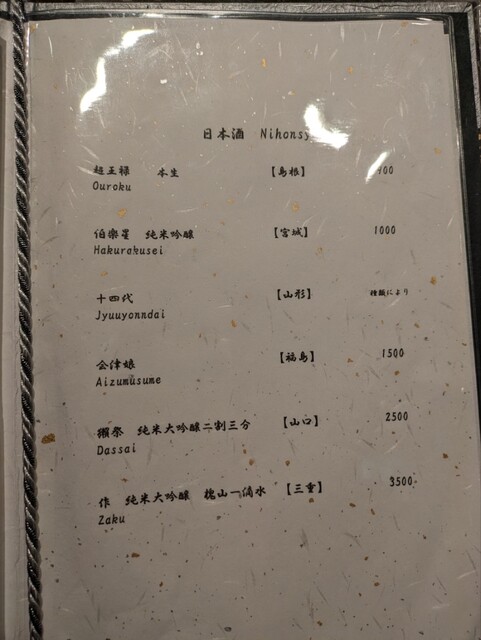 日本酒 Nihonsy
超王禄 本生 【島根】 00
Ouroku
伯楽星 純米吟醸 【宮城】 1000
Hakurakusei
十四代 【山形】 種類により
Jyuuyonndai
会津娘 【福島】 1500
Aizumusume
獺祭 純米大吟醸二割三分 【山口】 2500
Dassai
作 純米大吟醸 槐山一滴水 【三重】 3500
Zaku